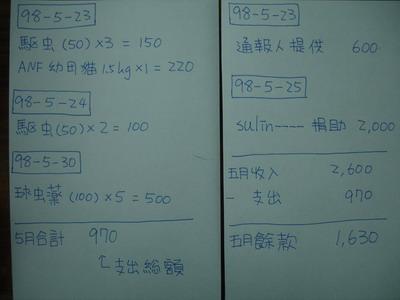 98-5-23
驅虫(50)×3=150
ANF幼母貓1.5kg×1=220
98-5-24
驅虫(50)×2=100
98-5-30
球虫藥(100)×5=500
5月合計 970
↑支出總額
98-5-23
通報人提供 600
98-5-25
sulin---- 捐助 2,000
五月收入 2,600
- 支出 970
五月餘款 1,630